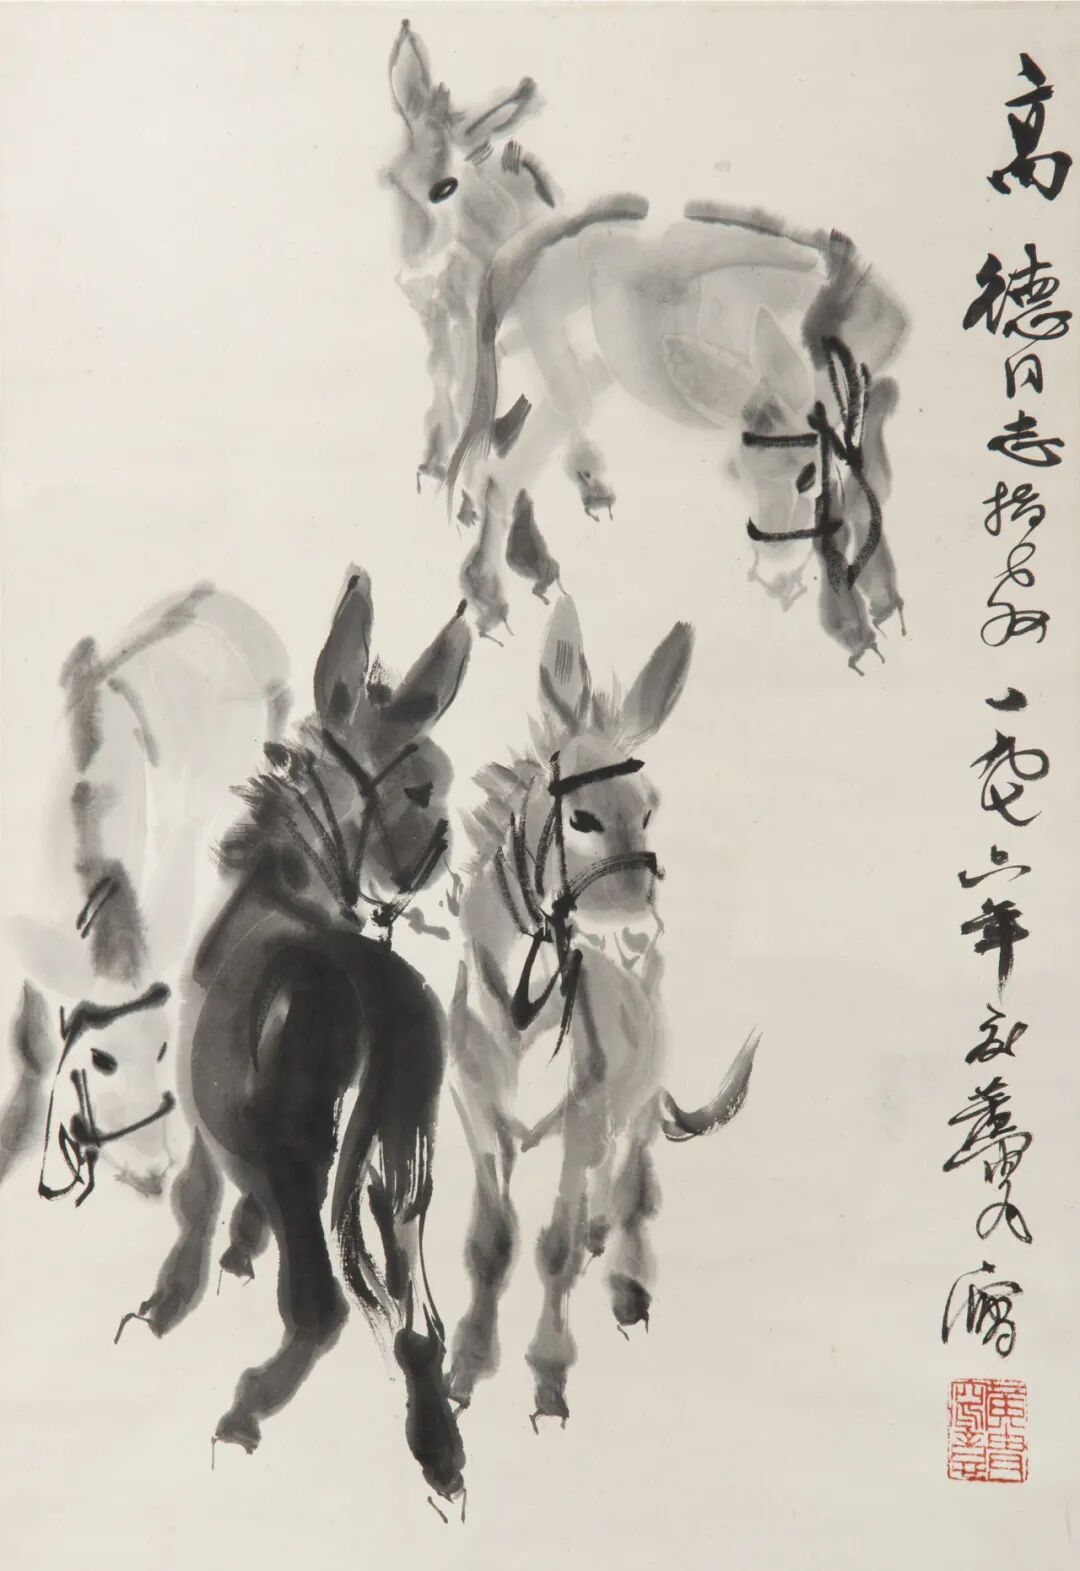 高德同志指教一九七六年秋黄胄冩
黄胄